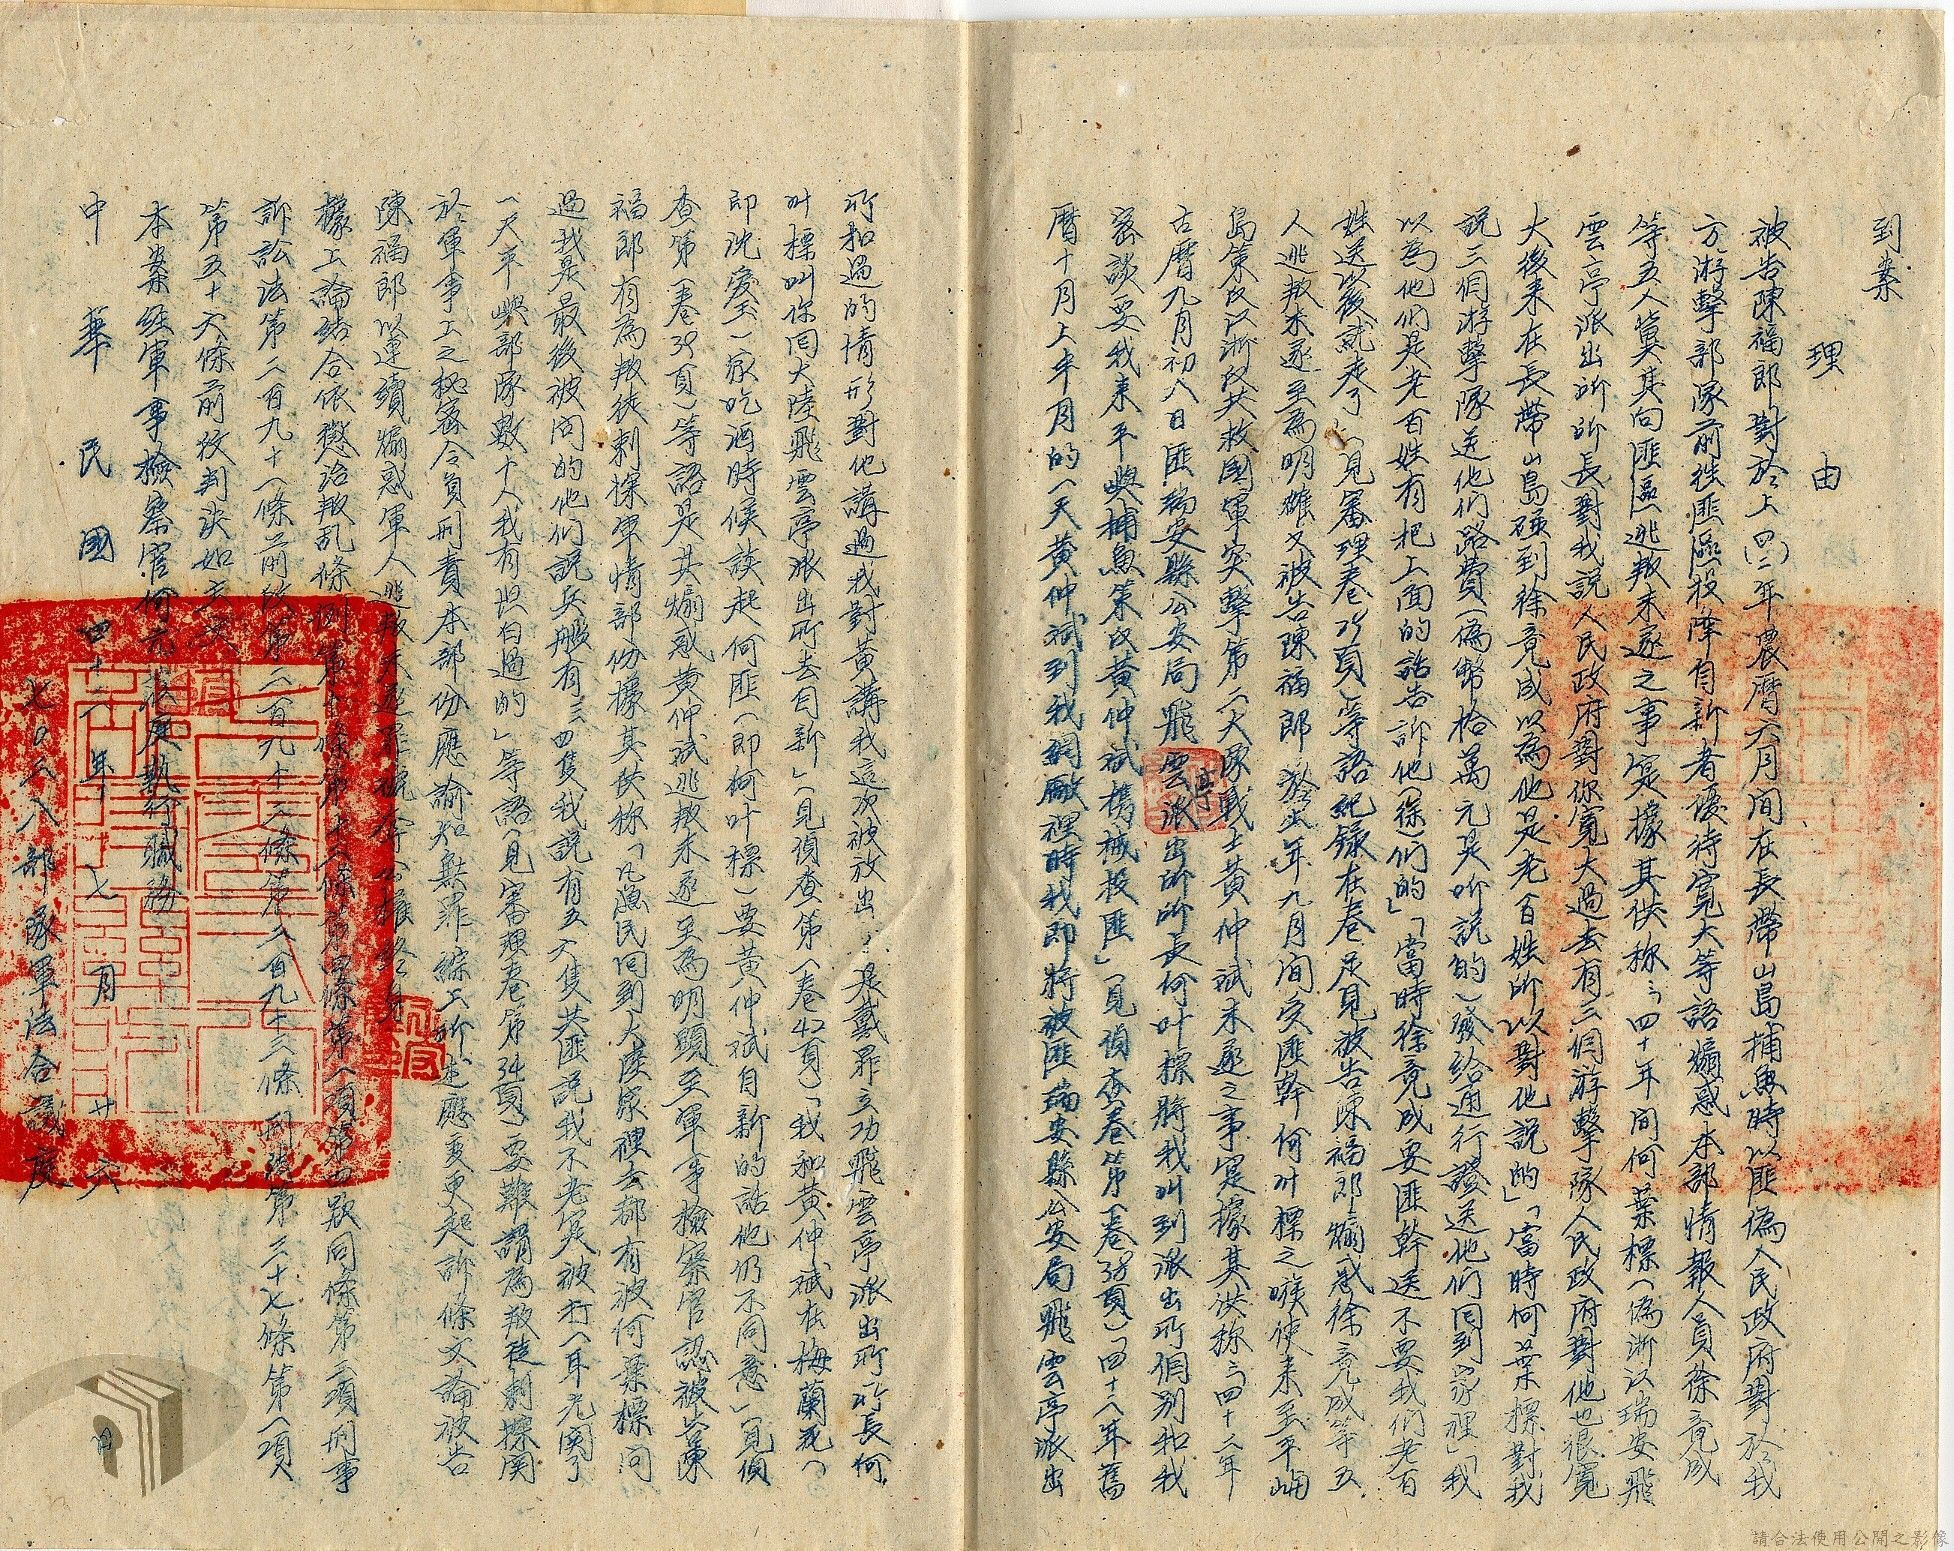 到案
理由
被告陳福郎對於上(四一)年農曆六月間在長帶山島捕魚時以匪偽人民政府對於我
方游擊部隊前往匪區投降自新者優待寬大等語煽惑本部情報人員徐竟成
等五人冀其向匪區逃叛未遂之事寔據其供称「四十年間何葉標(偽浙江瑞安飛
雲亭派出所所長對我說人民政府對你寬大過去有三個游擊隊人民政府對他也很寬
大後來在長帶山島碰到徐竟成以為他是老百姓所以對他說的」「當時何葉標對我
說三個游擊隊送他們路費(偽幣拾萬元是听說的)發給通行證送他們回到家裡」「我
以為他們是老百姓有把上面的話告訴他(徐)們的」「當時徐竟成要匪幹送不要我們老百
姓送以後就走了」(見審理卷25頁)等語紀錄在卷足見被告陳福郎煽惑徐竟成等五
人逃叛未遂至為明確又被告陳福郎於出年九月間受匪幹何叶標之嗾使來至平岫
島策反江浙反共救國軍突擊第六大隊戰士黃仲斌未遂之事寔據其供称「四十一年
古曆九月初八日匪瑞安縣公安局飛雲亭派出所所長何叶標將我叫到派出所個別和我
密談要我來平與捕魚策反黃仲斌攜械投匪」(見偵查卷第一卷38頁)「四十一年舊
曆十月上半月的一天黃仲斌到我網廠裡時我即將被匪瑞安縣公安局飛雲亭派出
所扣過的情形對他講過我對黃講我這次被放出來是戴罪立功飛雲亭派出所所長何
叶標叫你回大陸飛雲亭派出所去自新」(見偵查第一卷42頁)「我和黃仲斌在梅蘭花(
即沈愛玉)家吃酒時候談起何匪(即柯叶標)要黃仲斌自新的話他仍不同意」(見偵
查第一卷39頁)等語是其煽惑黃仲斌逃叛未遂至為明顯至軍事檢察官認被告陳
福郎有為叛徒刺探軍情部份據其供称「凡漁民回到大陸家裡去都有被何葉標问
過我是最後被问的他們說兵艦有三四隻我說有五六隻共匪說我不老寔被打一耳光関了
一天半與部隊數十人我有坦白過的」等語(見審理卷第34頁)要難謂為叛徒刺探関
於軍事上之秘密令負刑責本部份應諭知無罪綜上所述應变更起訴條文論被告
陳福郎以連續煽惑軍人逃叛未遂罪
據上論結合依懲治叛乱條例第條第第條第一項第四款同條第三項刑事
訴訟法第二百九十一條前段第二百九十二條第二百九十三條刑法第三十七條第一項
第五十六條前段判決如主文
本案經軍事檢察官何元庭執行職務
中華民國四十二年七月廿六日
七〇五八部隊軍法合議庭
請合法使用公開之影像